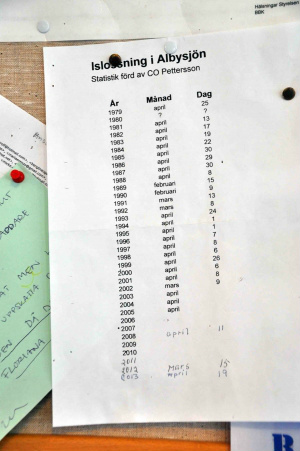 Hälsningar Styrelsen
BBK
Islossning i Albysjön
Statistik förd av CO Pettersson
År Månad Dag
1979 april 25
1980 ? ?
1981 april 13
1982 april 17
1983 april 19
1984 april 22
1985 april 30
1986 april 29
1987 april 30
1988 april 8
1989 februari 15
1990 februari 9
1991 mars 13
1992 mars 8
1993 april 24
1994 april 1
1995 april 1
1996 april 7
1997 april 8
1998 april 6
1999 april 26
2000 april 6
2001 april 8
2002 mars 9
2003 april
2004 april
2005 april
2006
2007
2008 april 11
2009
2010
2011
2012 Mars 15
2013 april 19
AT MEN
UPPSKATTA
EN DÅ D
FLORIANA
B